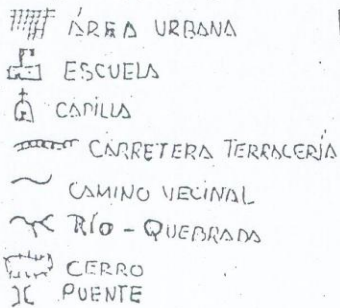 ÁREA URBANA
ESCUELA
CAPILLA
CARRETERA TERRACERÍA
CAMINO VECINAL
RÍO - QUEBRADA
CERRO
PUENTE